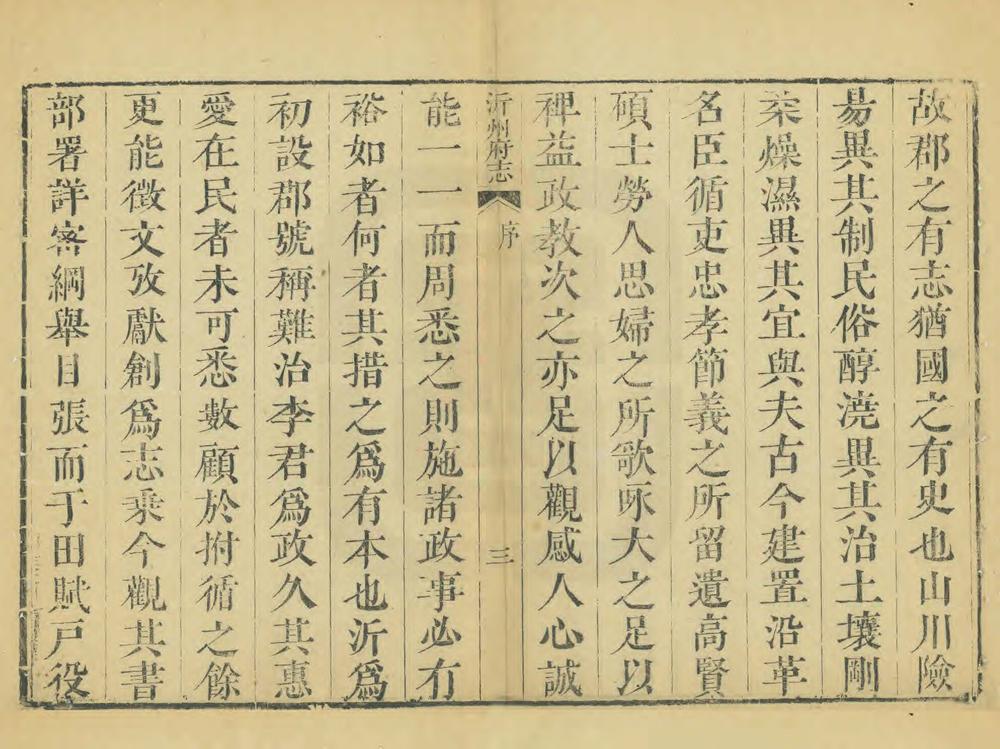 故郡之有志猶國之有史也山川險
昜異其制民俗醇澆異其治土壤剛
柔燥濕異其宜與夫古今建置沿革
名臣循吏忠孝節義之所留遺高賢
碩士勞人思婦之所歌咏大之足以
裨益政教次之亦足以觀感人心誠
沂州府志 序 三
能一一而周悉之則施諸政事必有
裕如者何者其措之爲有本也沂爲
初設郡號稱難治李君爲政久其惠
愛在民者未可悉數顧於拊循之餘
更能徵文攷獻創爲志乘今觀其書
部署詳宻綱舉目張而于田賦戸役